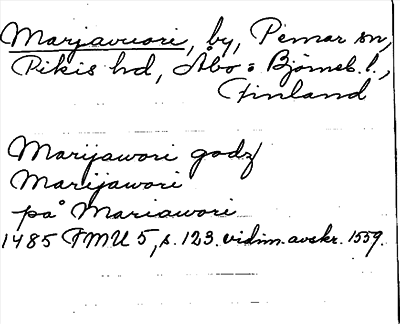 Marjavuori, by, Pemar sn,
Pikis hd, Åbo = Björneb. l.,
Finland
Marijawori godz
Marijawori
på Mariawori
1485 FMU 5, s. 123. vidim. avskr. 1559.